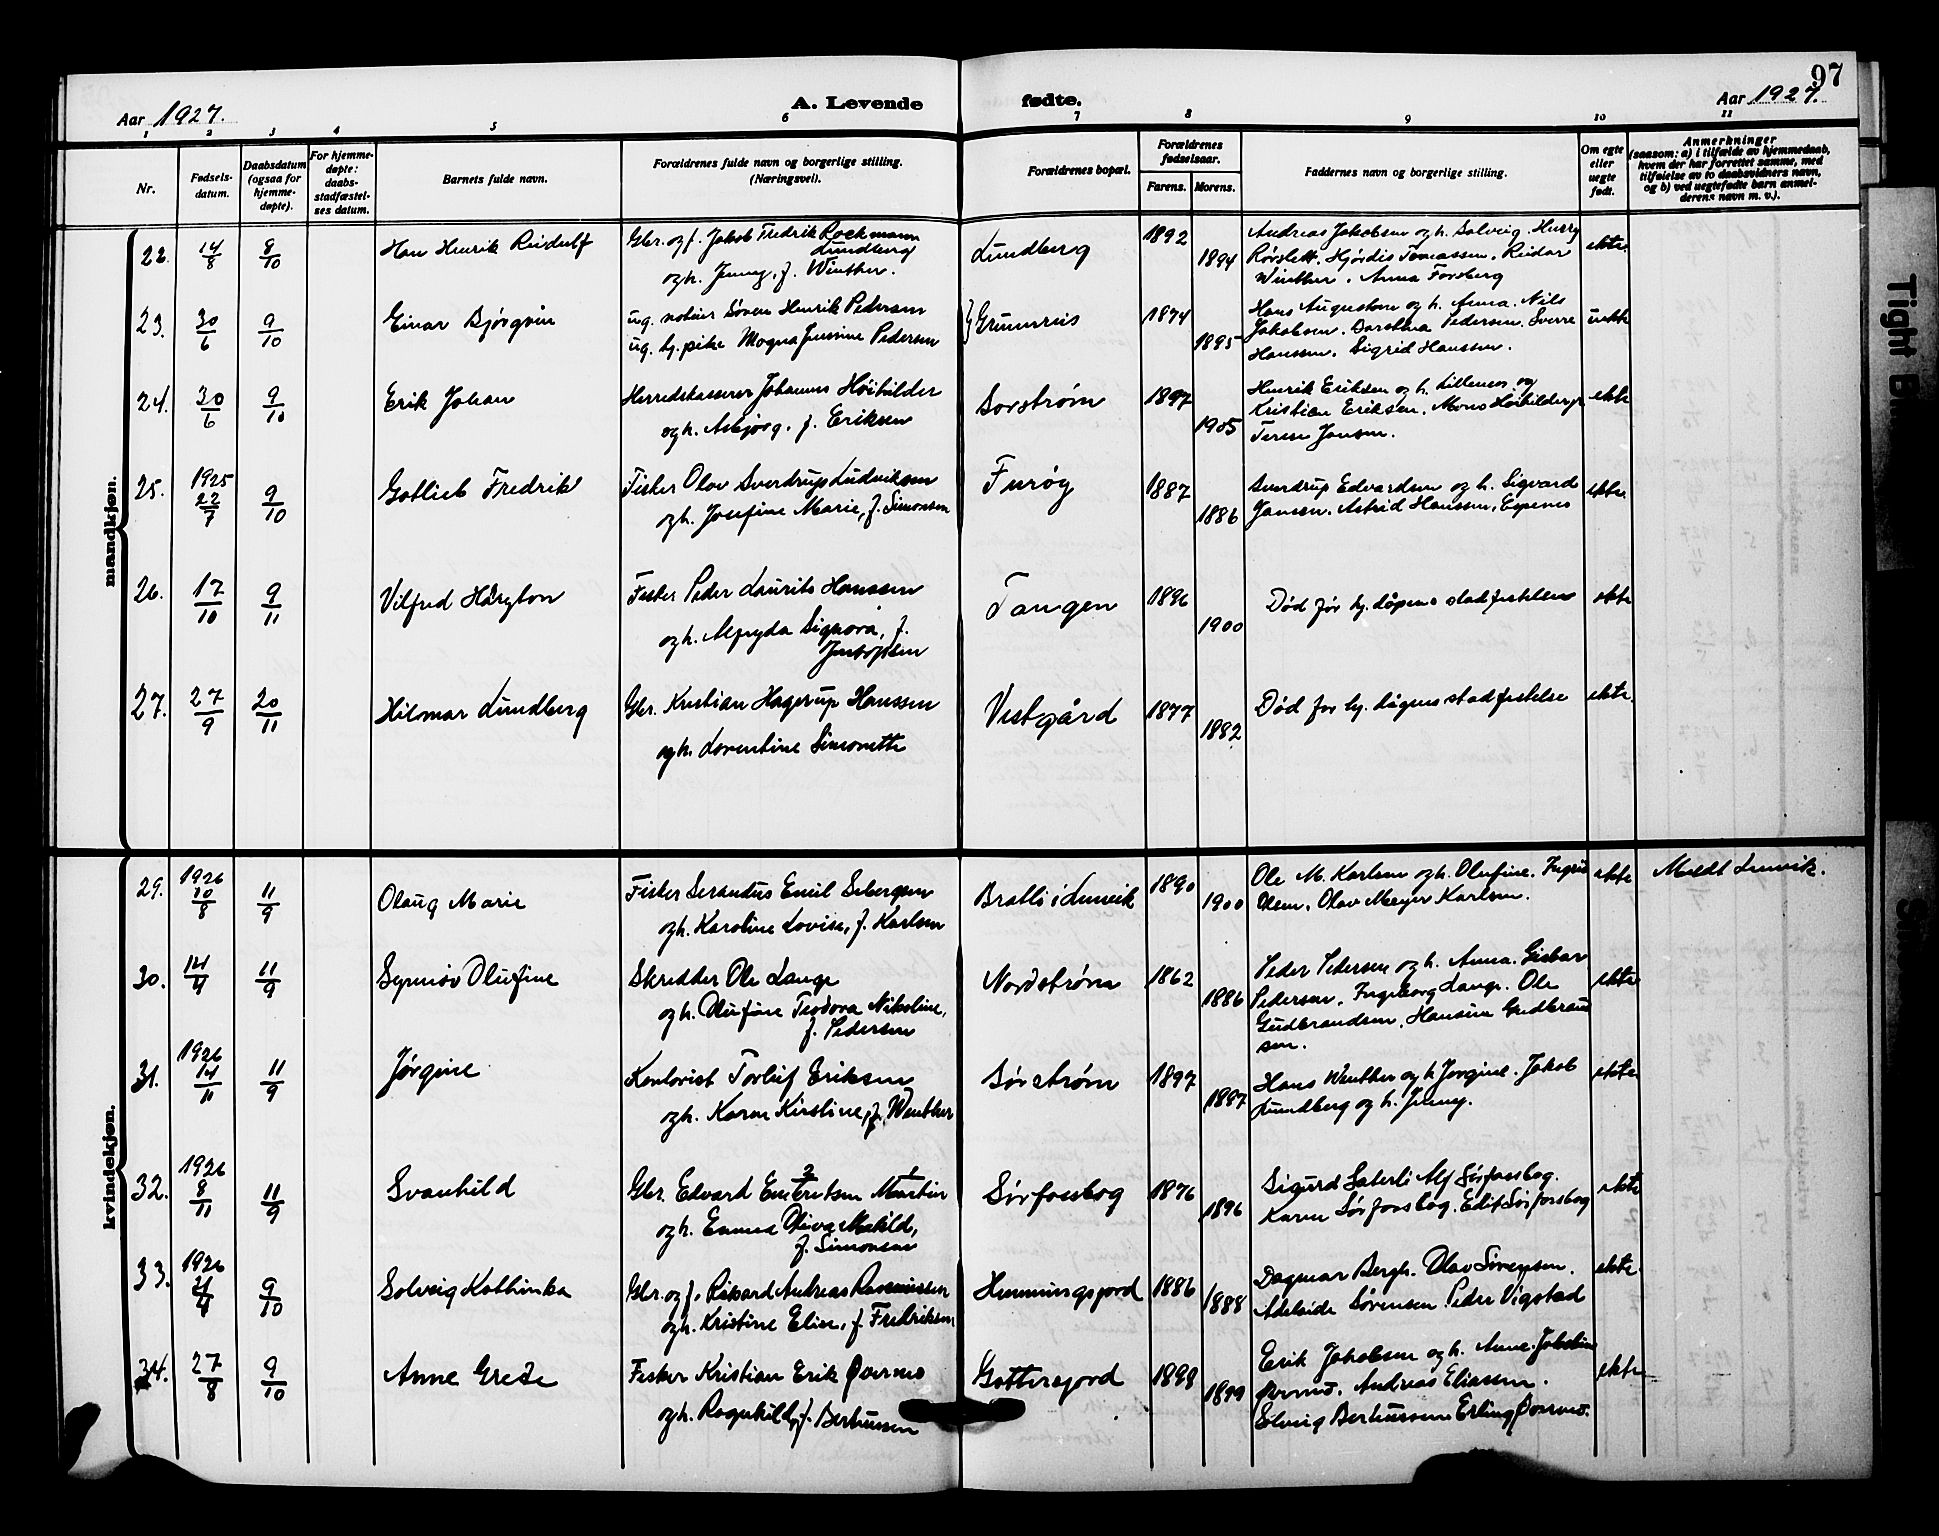 97
Aar 1927.
A. Levende fødte.
Aar 1927.
1 2 3 4 5 6 7 8 9 10 11
Nr.
Fødsels-
datum.
Daabsdatum
(ogsaa for
hjemme-
døpte).
For hjemme-
døpte:
daabs-
stadfæstel-
ses datum.
Barnets fulde navn.
Forældrenes fulde navn og borgerlige stilling.
(Næringsvei).
Forældrenes bopæl.
Forældrenes
fødselsaar.
Farens. Morens.
Faddernes navn og borgerlige stilling.
Om egte
eller
uegte
født.
Anmerkninger
(saasom: a) i tilfælde av hjemmedaab,
hvem der har forrettet samme, med
tilføielse av to daabsvidners navn,
og b) ved uegtefødte barn anmel-
derens navn m. v.).
mandkjøn.
22. 14/8 8/10 Henrik Reidulf
Gbr. og f. Jakob Fredrik Rockmann
Lundberg
og h. Jenny, f. Winther.
Lundberg 1892 1894
Andreas Jakobsen og h. Solveig
Hjørdis Tomassen. Reidar
Winther. Anna Forsberg
ekte
23. 30/6 9/10 Einar Bjørgvin
ug. Søren Henrik Pedersen
ug. hj. pike Magna Jensine Pedersen
Grunnreis 1874 1895
Hans Augustsen og h. Anna. Nils
Jakobsen. Pedersen. Sverre
Hanssen. Sigrid Hanssen.
uekte
24. 30/6 9/10 Erik Johan
Herredskasserer Johannes Høibilder
og h. Asbjørg. f. Eriksen
Sørstrøm 1897 1905
Henrik Eriksen og h.
Kristian Eriksen. Mons
Terese Jensen.
ekte
25. 1925 22/7 9/10 Gotlieb Fredrik
Fisker Olav Sverdrup Ludviksen
og h. Josefine Marie, f. Simonsen
Furøy 1887 1886
Sverdrup Edvardsen og h. Sigvard
Jansen. Astrid Hanssen, Espenes
ekte
26. 17/10 9/11 Vilfred
Fisker Peder Laurits Hanssen
og h. Signora, f.
Tangen 1896 1900
Død før hj. dåpens stadfestelse
ekte
27. 27/9 20/11 Hilmar Lundberg
Gbr. Kristian Hagerup Hanssen
og h. Lorentine Simonette
Vestgård 1877 1882
Død før hj. dåpens stadfestelse
ekte
kvindekjøn.
29. 1926 10/8 11/9 Olaug Marie
Fisker Serandus Emil Sebergsen
og h. Karoline Lovise, f. Karlsen
Bratli i Lenvik 1890 1900
Ole M. Karlsen og h. Olufine.
Olsen. Olav Meyer Karlsen.
ekte
Meldt Lenvik.
30. 14/4 11/9 Synnøv Olufine
Skredder Ole Lange
og h. Olufine Teodora Nikoline,
f. Pedersen
Nordstrøm 1862 1886
Peder Pedersen og h. Anna.
Pedersen, Ingeborg Lange. Ole
Gudbrandsen, Hansine Gudbrand
sen.
ekte
31. 1926 14/11 11/9 Jørgine
Kontorist Torleif Eriksen
og h. Karen Kirstine, f. Winther
Sørstrøm 1897 1897
Hans Winther og h Jørgine. Jakob
Lundberg og h. Jenny.
ekte
32. 1926 8/11 11/9 Svanhild
Gbr. Edvard Martin
og h. Emma Oliva Matild,
f. Simonsen
Sørfonsbog 1876 1896
Sigurd Saterli Alf Sørfonsbog.
Karen Sørfonsbog. Edit Sørfonsbog
ekte
33. 1926 9/10 Solveig Kathinka
Gbr. og f. Rikard Andreas Rasmussen
og h. Kristine Elise, f. Fredriksen
Hemmingsjord 1886 1888
Dagmar Bergh. Olav Sørensen.
Adelaide Sørensen. Peder Vigstad
ekte
34. 27/8 9/10 Anne Grete
Fisker Kristian Erik Overmo
og h. Ragnhild, f. Berteussen
Gottesjord 1898 1899
Erik Jakobsen og h. Anne.
Overmo. Andreas Eliassen.
Solveig Berteussen Erling Overmo.
ekte
Tight Bi